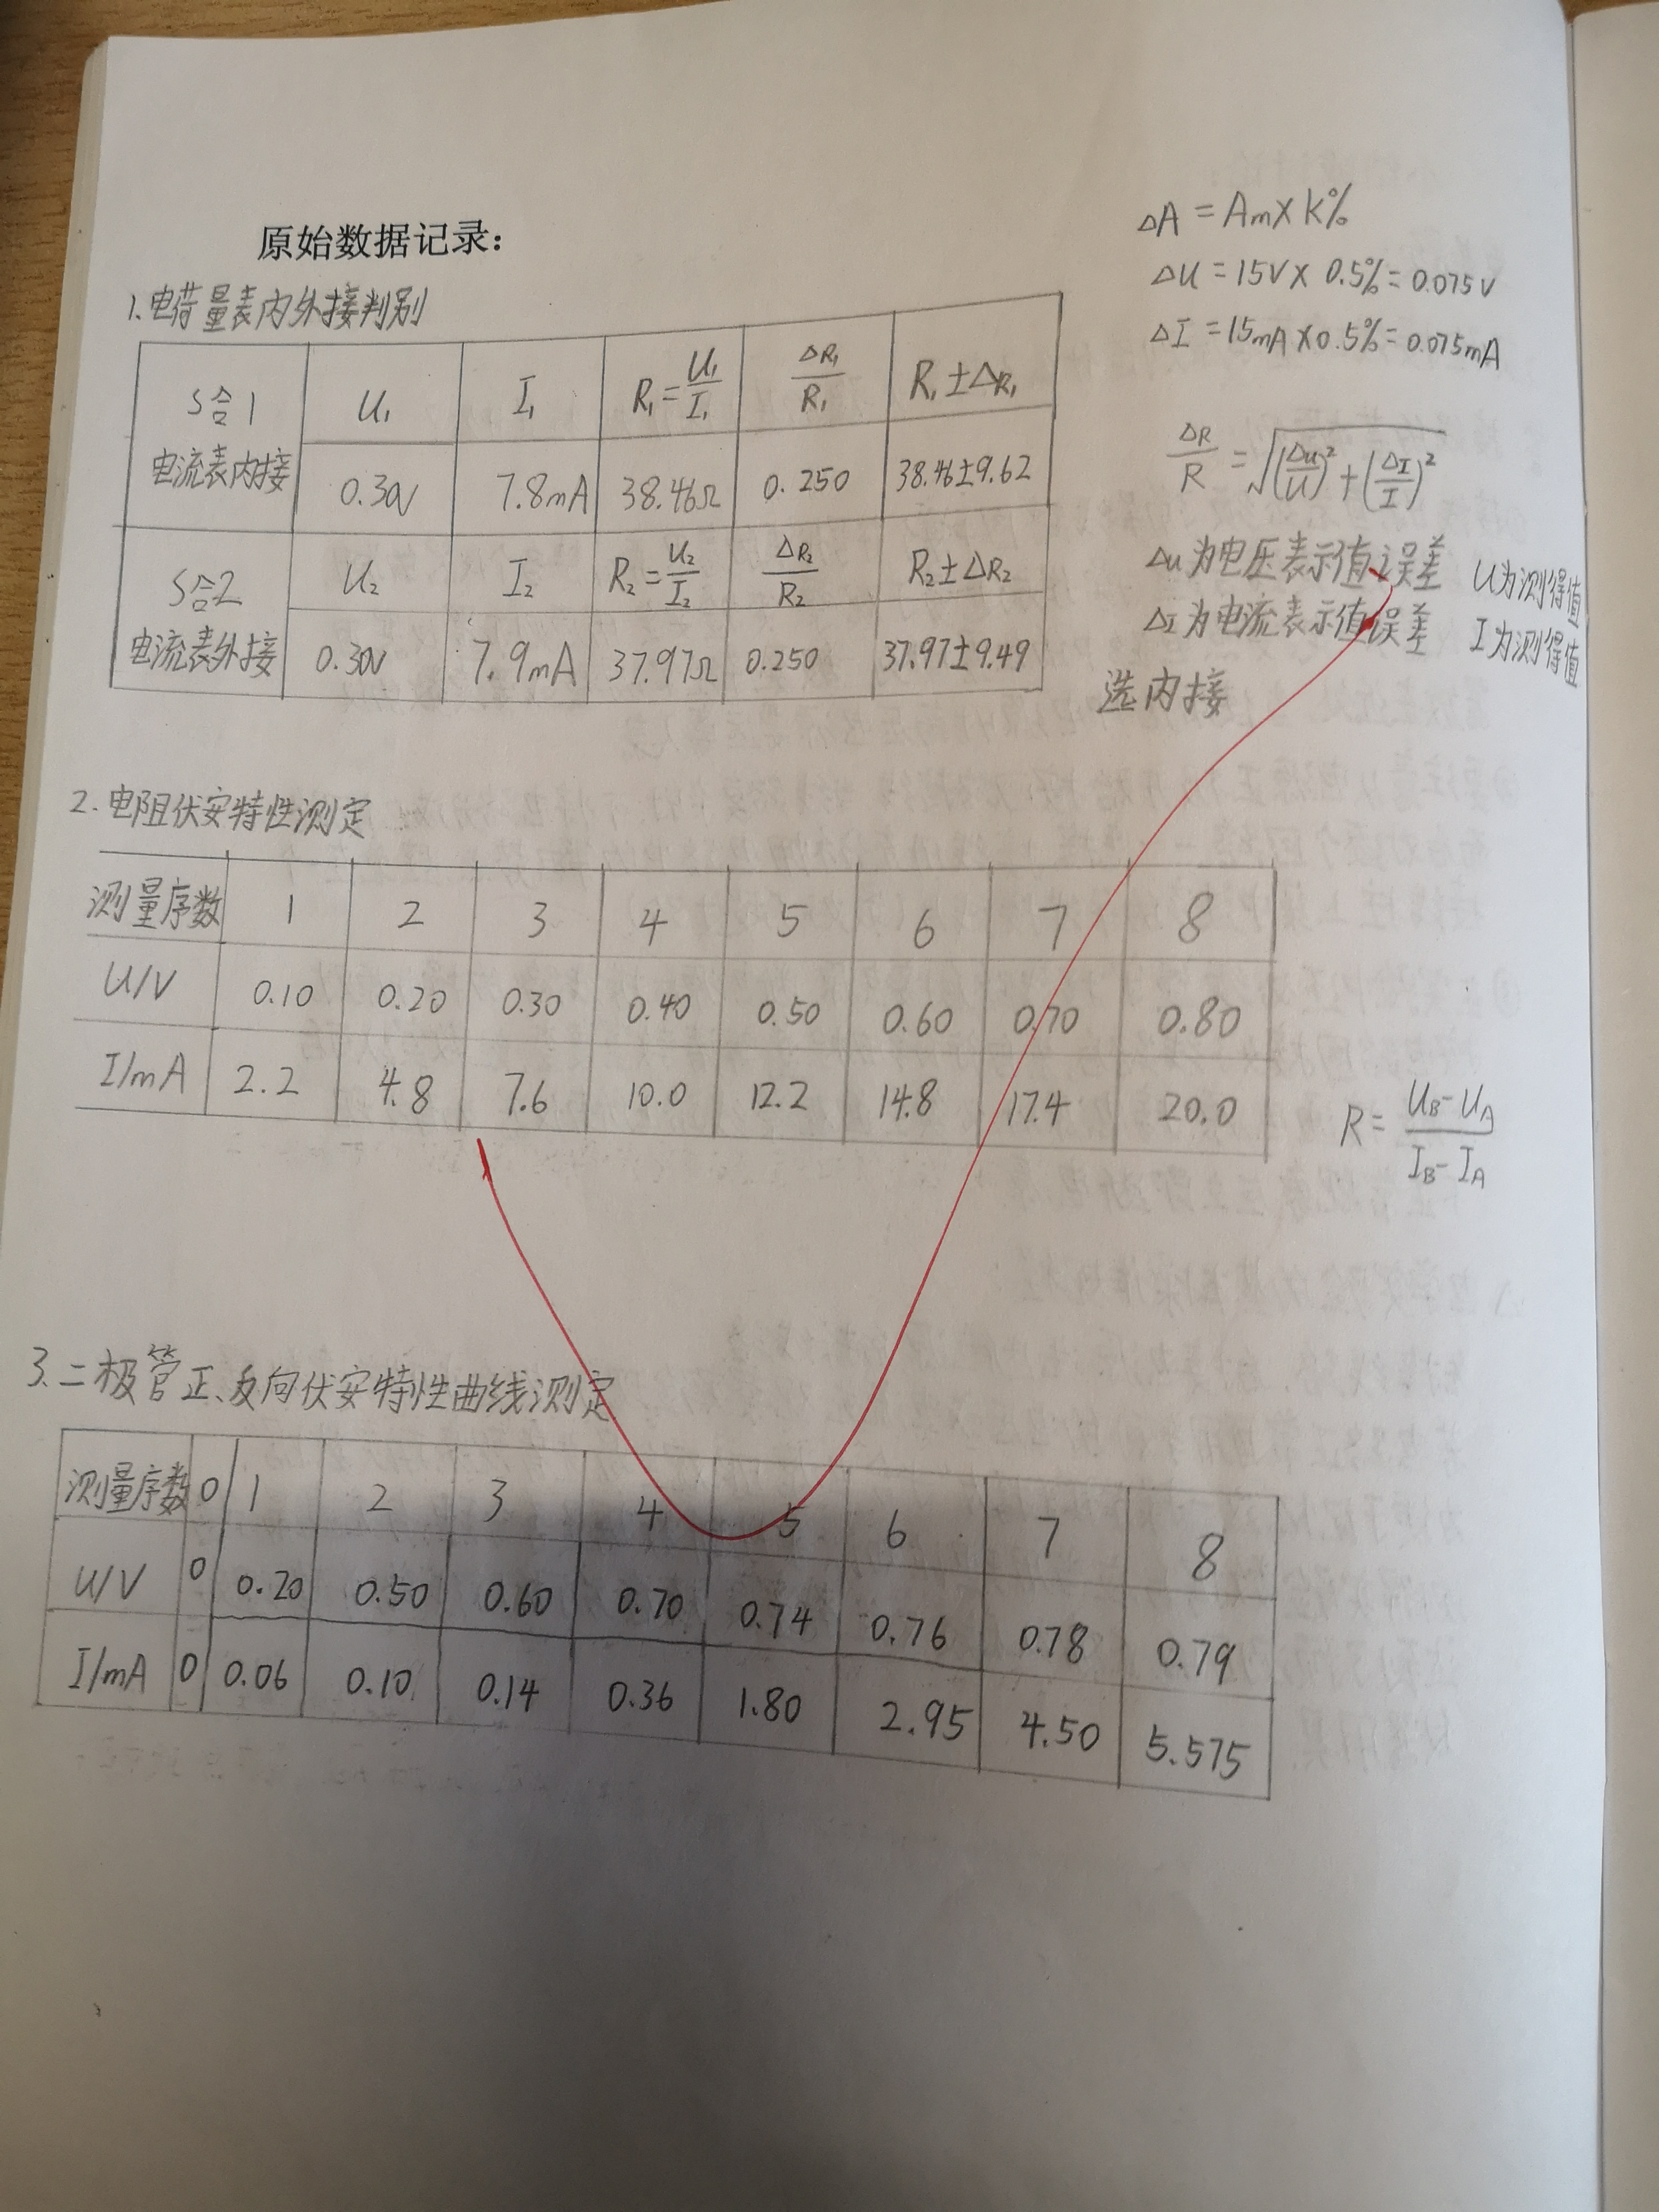 原始数据记录:
1.电荷量表内外接判别
S合1 电流表内接 U₁ I₁ R₁=U₁/I₁ ΔR₁/R₁ R₁±ΔR₁
0.30V 7.8mA 38.46Ω 0.250 38.46±9.62
S合2 电流表外接 U₂ I₂ R₂=U₂/I₂ ΔR₂/R₂ R₂±ΔR₂
0.30V 7.9mA 37.97Ω 0.250 37.97±9.49
ΔA=Am×K%
ΔU=15V×0.5%=0.075V
ΔI=15mA×0.5%=0.075mA
ΔR/R=√((ΔU/U)²+(ΔI/I)²)
Δu为电压表示值误差 U为测得值
ΔI为电流表示值误差 I为测得值
选内接
2.电阻伏安特性测定
测量序数 1 2 3 4 5 6 7 8
U/V 0.10 0.20 0.30 0.40 0.50 0.60 0.70 0.80
I/mA 2.2 4.8 7.6 10.0 12.2 14.8 17.4 20.0
R=(U_B-U_A)/(I_B-I_A)
3.二极管正、反向伏安特性曲线测定
测量序数 0 1 2 3 4 5 6 7 8
U/V 0 0.20 0.50 0.60 0.70 0.74 0.76 0.78 0.79
I/mA 0 0.06 0.10 0.14 0.36 1.80 2.95 4.50 5.575